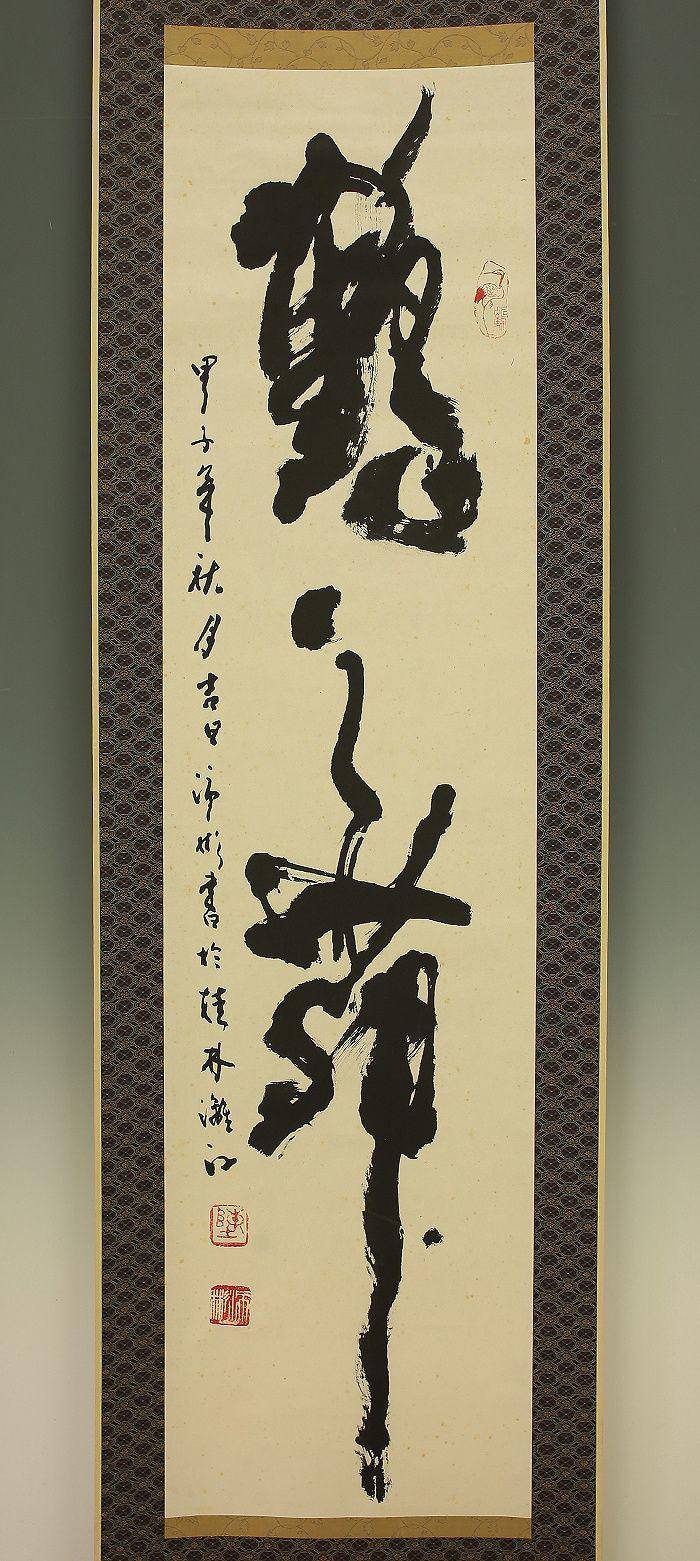 鶴之舞
甲子年秋月吉日沛彬書於桂林灕江